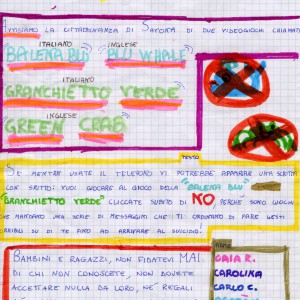 AVVISIAMO LA CITTADINANZA DI SAVOIA DI DUE VIDEOGIOCHI CHIAMATI
ITALIANO INGLESE
BALENA BLU BLU WHALE
ITALIANO
GRANCHIETTO VERDE
INGLESE
GREEN CRAB
SE MENTRE USATE IL TELEFONO VI POTREBBE APPARIRE UNA SCRITTA
CON SCRITTO: VUOI GIOCARE AL GIOCO DELLA "BALENA BLU"
"GRANCHIETTO VERDE" CLICCATE SUBITO DI NO PERCHÉ SONO GIOCHI
CHE MANDANO UNA SERIE DI MESSAGGINI CHE TI ORDINANO DI FARE GESTI
ORRIBILI SU DI TE FINO AD ARRIVARE AL SUICIDIO.
BAMBINI E RAGAZZI, NON FIDATEVI MAI
DI CHI NON CONOSCETE, NON DOVETE
ACCETTARE NULLA DA LORO, NE' REGALI
GAIA R.
CAROLINA
CARLO C.